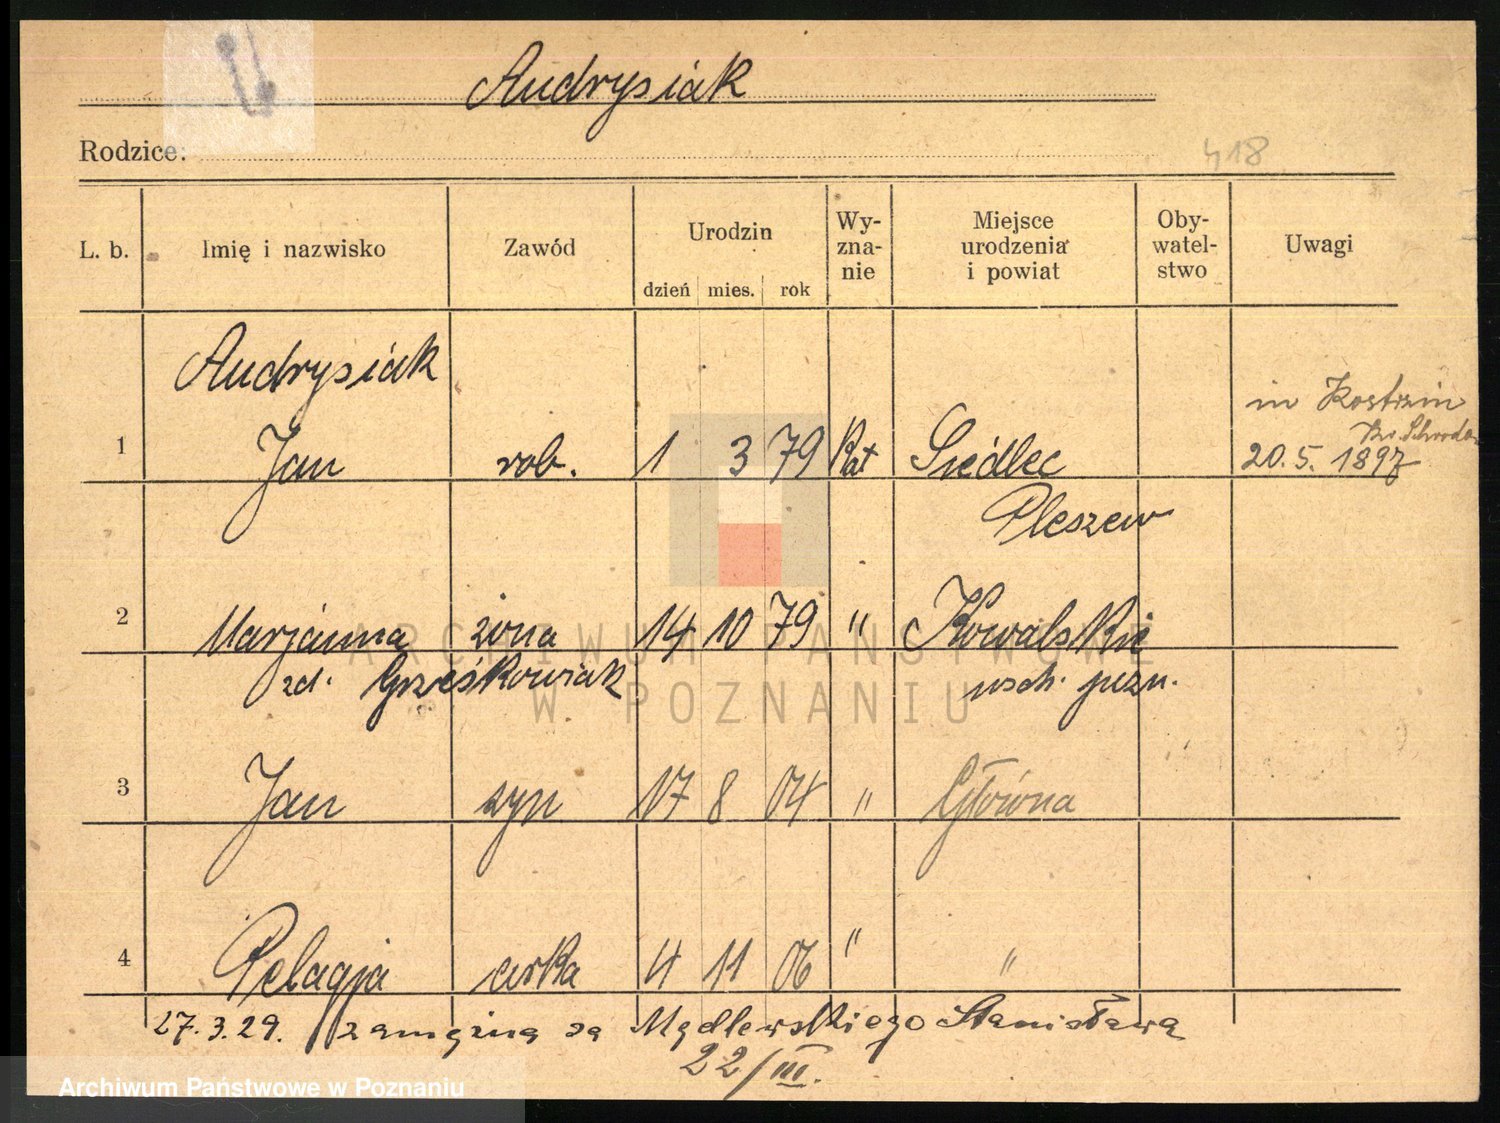 Andrysiak
Rodzice:
418
L. b. Imię i nazwisko Zawód Urodzin dzień mies. rok Wy-zna-nie Miejsce urodzenia i powiat Oby-watel-stwo Uwagi
Andrysiak
in Kostrzin
1 Jan rob. 1 3 79 Kat Siedlec 20.5. 1897
Pleszew
2 Marjanna żona 14 10 79 " Kowalskie
zd. Grześkowiak wsch. pozn.
3 Jan syn 17 8 04 " Główna
4 Pelagja córka 4 11 06 " "
27.3.29. zamężna za Mądlewskiego Stanisława
22/III.
ARCHIWUM PAŃSTWOWE
W POZNANIU
Archiwum Państwowe w Poznaniu